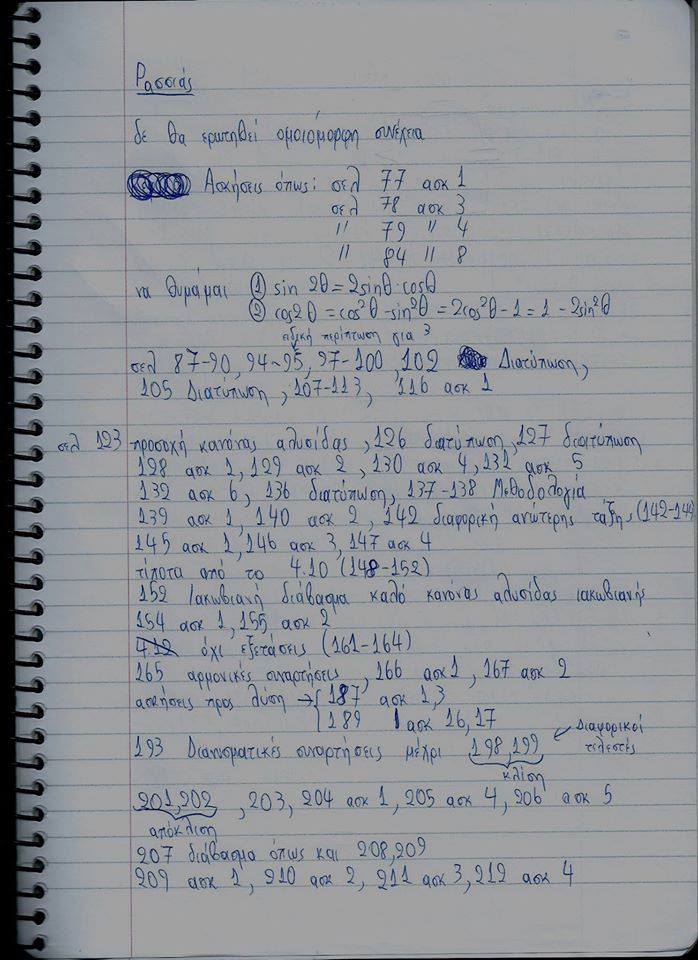 Ρασσιάς
δε θα ερωτηθεί ομοιόμορφη συνέχεια
Ασκήσεις όπως: σελ 77 ασκ 1
σελ 78 ασκ 3
" 79 " 4
" 84 " 8
να θυμάμαι ① sin 2θ = 2sinθ·cosθ
② cos2θ = cos²θ - sin²θ = 2cos²θ - 1 = 1 - 2sin²θ
ειδική περίπτωση για 3
σελ 87-90, 94-95, 97-100, 102 Διατύπωση,
105 Διατύπωση, 107-113, 116 ασκ 1
σελ 123 προσοχή κανόνας αλυσίδας, 126 διατύπωση, 127 διατύπωση
128 ασκ 1, 129 ασκ 2, 130 ασκ 4, 131 ασκ 5
132 ασκ 6, 136 διατύπωση, 137-138 Μεθοδολογία
139 ασκ 1, 140 ασκ 2, 142 διαφορική ανώτερης τάξης (142-144
145 ασκ 1, 146 ασκ 3, 147 ασκ 4
τίποτα από το 4.10 (148-152)
152 Ιακωβιανή διάβασμα καλό κανόνας αλυσίδας ιακωβιανής
154 ασκ 1, 155 ασκ 2
4.12 όχι εξετάσεις (161-164)
165 αρμονικές συναρτήσεις, 166 ασκ 1, 167 ασκ 2
ασκήσεις προς λύση → { 187 ασκ 1,3
189 ασκ 16, 17
193 Διανυσματικές συναρτήσεις μέχρι 198, 199 ← Διαφορικοί τελεστές
κλίση
201, 202, 203, 204 ασκ 1, 205 ασκ 4, 206 ασκ 5
απόκλιση
207 διάβασμα όπως και 208, 209
209 ασκ 1, 210 ασκ 2, 211 ασκ 3, 212 ασκ 4